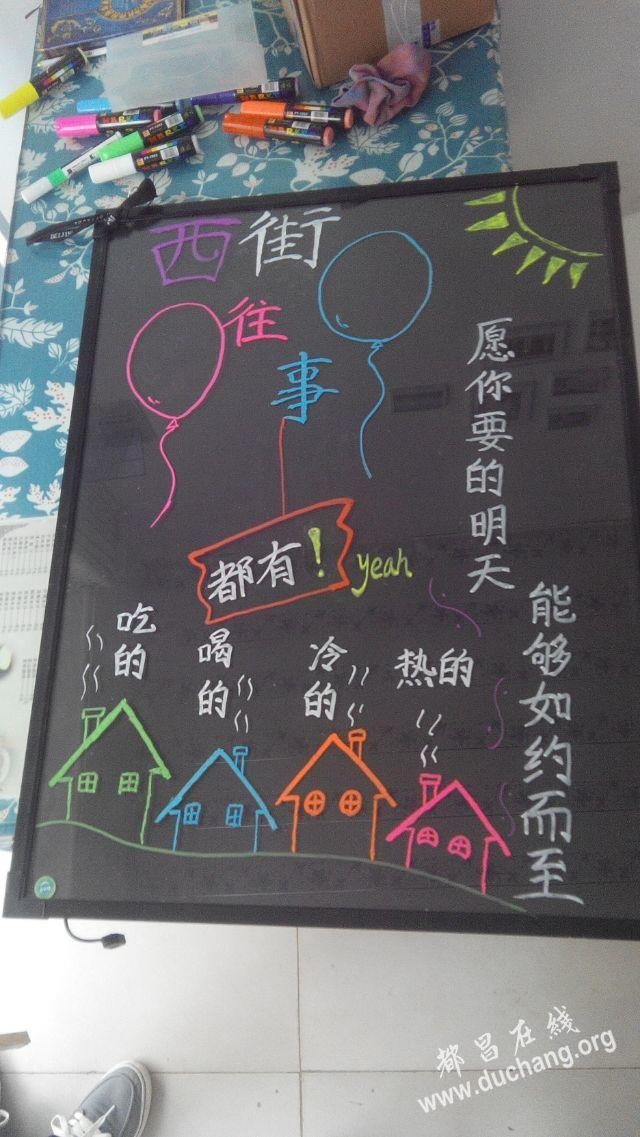 西街
往事
都有!
yeah
吃的
喝的
冷的
热的
愿你要的明天
能够如约而至
都昌在线
www.duchang.org